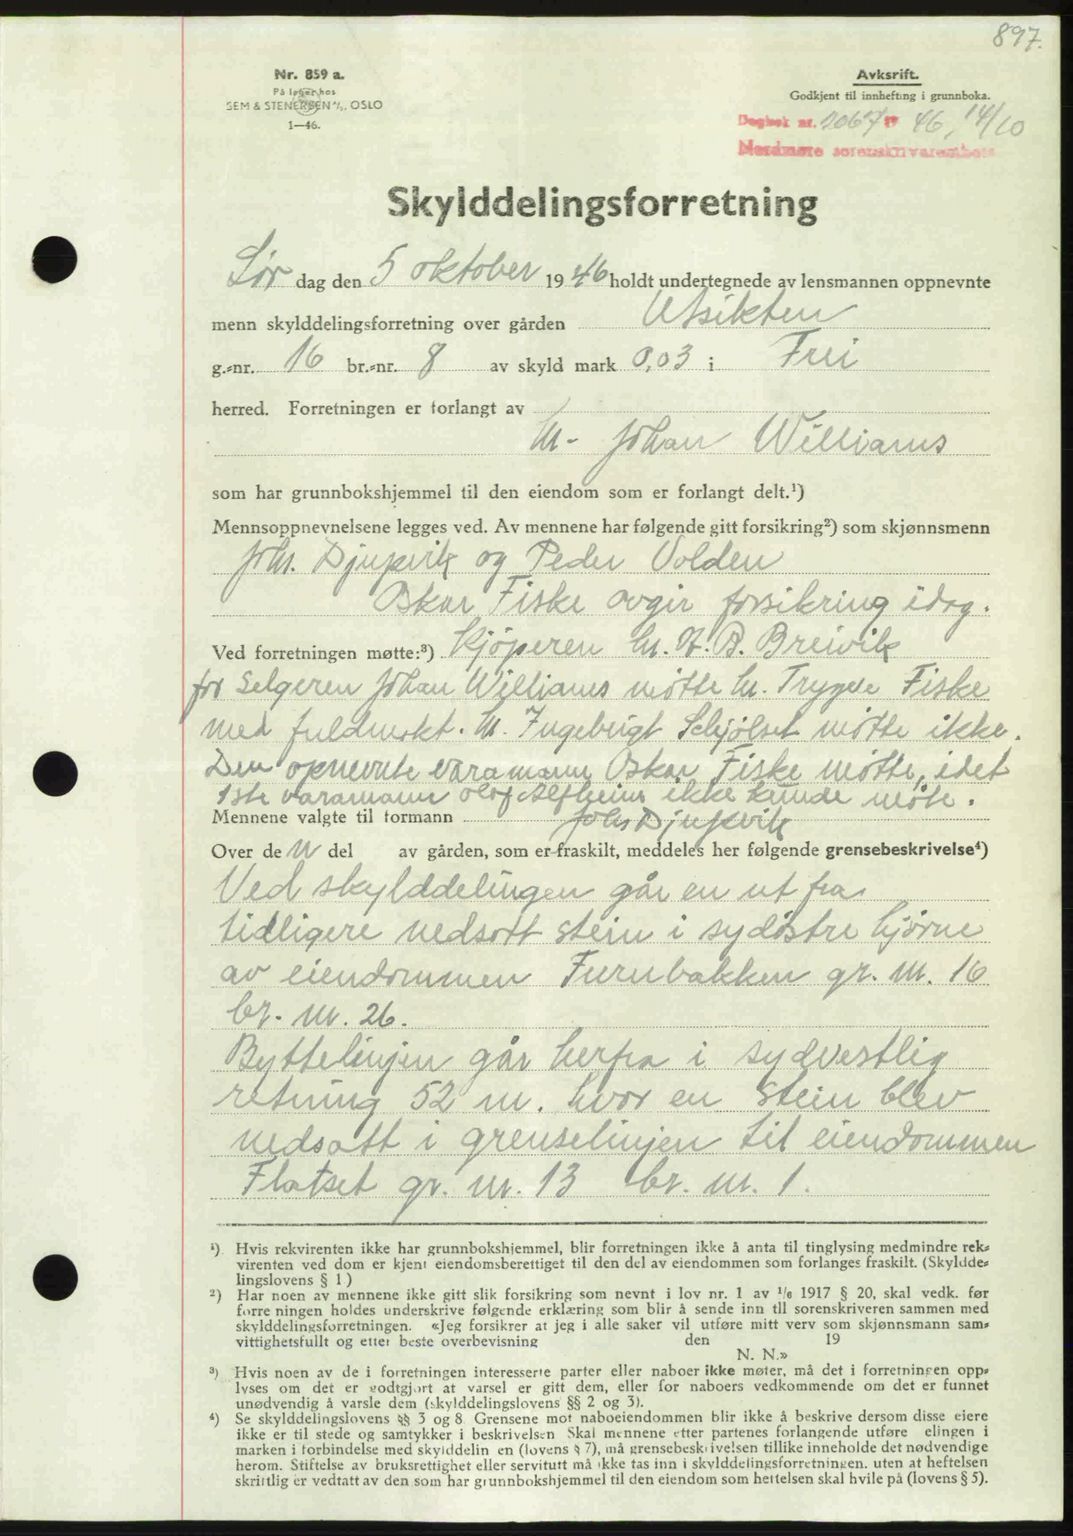 897.
Nr. 859 a.
På lager hos
SEM & STENERSEN A/S, OSLO
1—46.
Avskrift.
Godkjent til innhefting i grunnboka.
Dagbok nr. 2067 19 46, 14/10
Nordmøre sorenskriverembete
Skylddelingsforretning
Lør dag den 5 oktober 1946 holdt undertegnede av lensmannen oppnevnte
menn skylddelingsforretning over gården Utsikten
g.-nr. 16 br.-nr. 8 av skyld mark 0,03 i Frei
herred. Forretningen er forlangt av
hr. Johan Williams
som har grunnbokshjemmel til den eiendom som er forlangt delt.¹)
Mennsoppnevnelsene legges ved. Av mennene har følgende gitt forsikring²) som skjønnsmenn
Johs. Djupvik og Peder Volden
Oskar Fiske avgir forsikring idag.
Ved forretningen møtte:³) Kjøperen hr. N. B. Breivik
for Selgeren Johan Williams møtte hr. Trygve Fiske
med fuldmakt. hr. Ingebrigt Schjølset møtte ikke.
Den opnevnte varamann Oskar Fiske møtte, idet
1ste varamann Olof Alfheim ikke kunde møte.
Mennene valgte til formann Johs Djupvik
Over de n del av gården, som er fraskilt, meddeles her følgende grensebeskrivelse⁴)
Ved skylddelingen går en ut fra
tidligere nedsatt stein i sydøstre hjørne
av eiendommen Furubakken gr. nr. 16
br. nr. 26.
Byttelinjen går herfra i sydvestlig
retning 52 m. hvor en stein blev
nedsatt i grenselinjen til eiendommen
Flatset gr. nr. 13 br. nr. 1.
¹) Hvis rekvirenten ikke har grunnbokshjemmel, blir forretningen ikke å anta til tinglysing medmindre rek-
virenten ved dom er kjent eiendomsberettiget til den del av eiendommen som forlanges fraskilt. (Skyldde-
lingslovens § 1)
²) Har noen av mennene ikke gitt slik forsikring som nevnt i lov nr. 1 av 1/6 1917 § 20, skal vedk. før
forretningen holdes underskrive følgende erklæring som blir å sende inn til sorenskriveren sammen med
skylddelingsforretningen. «Jeg forsikrer at jeg i alle saker vil utføre mitt verv som skjønnsmann sam-
vittighetsfullt og etter beste overbevisning den 19
N. N.»
³) Hvis noen av de i forretningen interesserte parter eller naboer ikke møter, må det i forretningen opp-
lyses om det er godtgjort at varsel er gitt dem, eller for naboers vedkommende om det er funnet
unødvendig å varsle dem (skylddelingslovens §§ 2 og 3).
⁴) Se skylddelingslovens §§ 3 og 8. Grensene mot naboeiendommen blir ikke å beskrive dersom disse eiere
ikke er til stede og samtykker i beskrivelsen Skal mennene etter partenes forlangende utføre elingen i
marken i forbindelse med skylddelin en (lovens § 7), må grensebeskrivelsen tillike inneholde det nødvendige
herom. Stiftelse av bruksrettighet eller servitutt må ikke tas inn i skylddelingsforretningen. uten at heftelsen
skriftlig er vedtatt av den som har grunnbokshjemmel til den eiendom som heftelsen skal hvile på (lovens § 5).